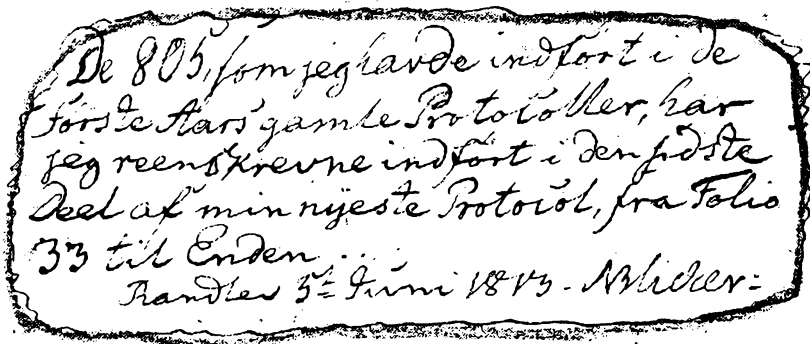 De 805, som jeg havde indført i de
første Aars gamle Protocoller, har
jeg reenskrevne indført i den sidste
Deel af min nyeste Protocol, fra Folio
33 til Enden.
Randlev 5te Juni 1813. NBlicher